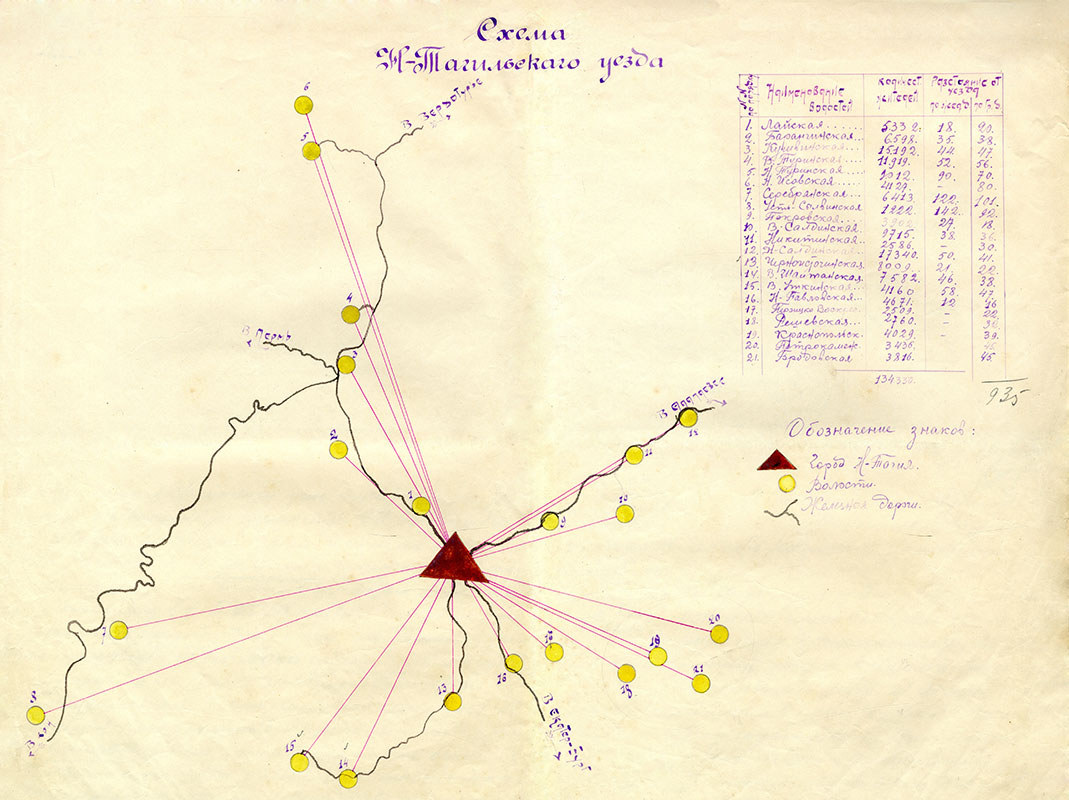 Схема
Н-Тагильского уезда
В Верхотурье
6
5
4
В Пермь
3
2
1
В Алапаевск
12
11
10
9
7
8
13
14
15
16
18
19
20
21
В Екатер-бург
Наименование волостей
Количест жителей
Расстояние от уезда
1. Лайская 5332. 18. 20.
2. Баранчинская 6598. 35. 38.
3. Кушвинская 15192. 44. 47.
4. В. Туринская 11919. 52. 56.
5. Н. Туринская 2012. 90. 70.
6. Н. Исовская 4127. - 80.
7. Серебрянская 6413. 122. 101.
8. Усть-Сылвинская 1222. 142. 92.
9. Покровская 27. 18.
10. В. Салдинская 9715. 38.
11. Никитинская 2586. - 30.
12. Н-Салдинская 17340. 50. 41.
13. Черноисточинская 8009. 21. 22.
14. В. Шайтанская 7582. 46. 38.
15. В. Уткинская 4160 58. 47.
16. Н-Павловская 4671. 12 16
17. Троицко Воскресе 2509. - 22.
18. Решевская 2760. -
19. Краснопольск. 4029. - 39.
20. Петрокаменс. 3436.
21. Бродовская 3816. 45.
935
Обозначение знаков:
Город Н-Тагил.
Волости.
Железная дорги.